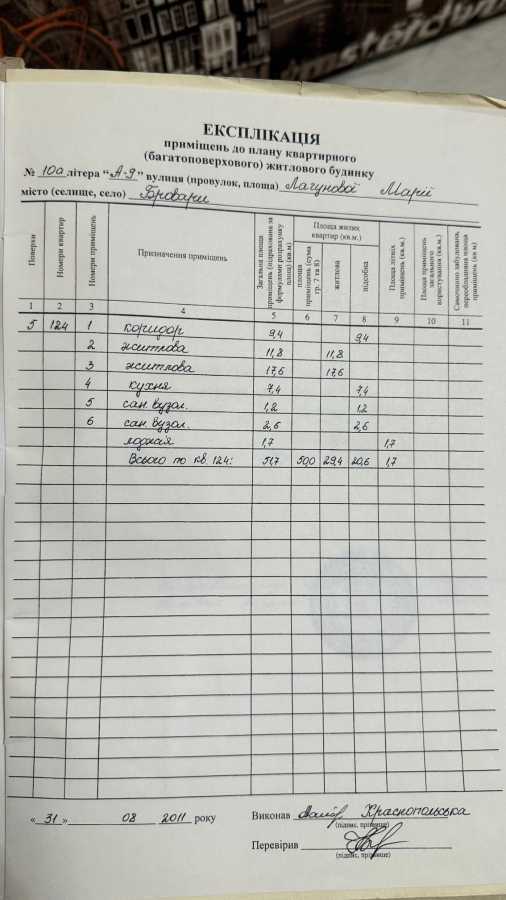 ЕКСПЛІКАЦІЯ
приміщень до плану квартирного
(багатоповерхового) житлового будинку
№ 10а літера “А-9” вулиця (провулок, площа) Лагунової Марії
місто (селище, село) Бровари
Поверхи
Номери квартир
Номери приміщень
Призначення приміщень
Загальна площа приміщень (підрахована за формулами розрахунку площ) (кв.м)
Площа жилих квартир (кв.м.)
площа приміщень (сума гр. 7 та 8)
житлова
підсобна
Площа літніх приміщень (кв.м.)
Площа приміщень загального користування (кв.м.)
Самочинно забудована, переобладнана площа приміщень (кв м)
1 2 3 4 5 6 7 8 9 10 11
5 124 1 коридор 9,4 9,4
2 житлова 11,8 11,8
3 житлова 17,6 17,6
4 кухня 7,4 7,4
5 сан. вузол. 1,2 1,2
6 сан. вузол. 2,6 2,6
лоджія 1,7 1,7
Всього по кв. 124: 51,7 50,0 29,4 20,6 1,7
« 31 » 08 2011 року
Виконав Краснопольська
(підпис, прізвище)
Перевірив
(підпис, прізвище)